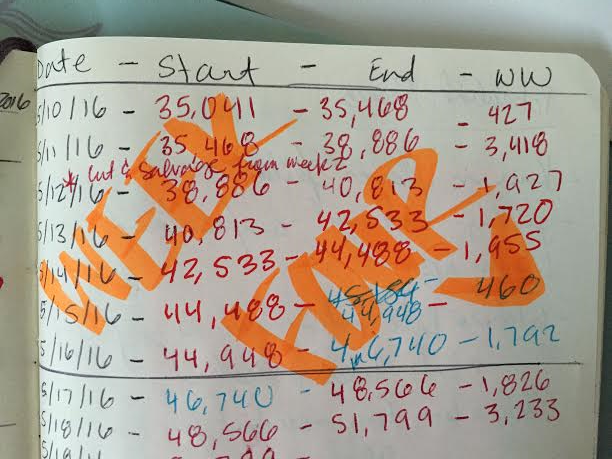 Date - Start - End - WW
2016
5/10/16 - 35,041 - 35,468 - 427
5/11/16 - 35,468 - 38,886 - 3,418
* cut & salvage from week 2
5/12/16 - 38,886 - 40,813 - 1,927
5/13/16 - 40,813 - 42,533 - 1,720
5/14/16 - 42,533 - 44,488 - 1,955
5/15/16 - 44,488 - 44,948 - 460
5/16/16 - 44,948 - 46,740 - 1,792
WEEK
FOUR
5/17/16 - 46,740 - 48,566 - 1,826
5/18/16 - 48,566 - 51,799 - 3,233